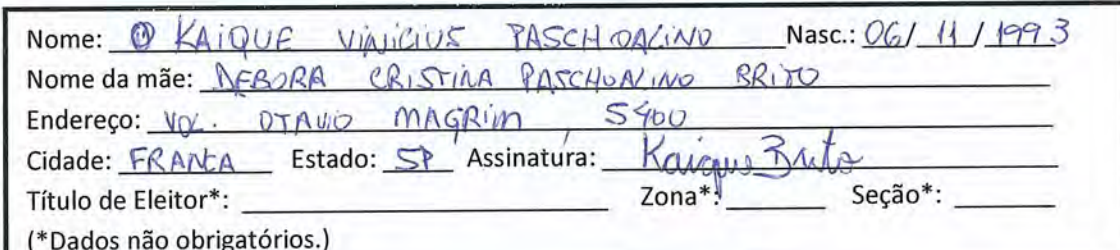 Nome: KAIQUE VINICIUS PASCHOALINO Nasc.: 06/11/1993
Nome da mãe: DEBORA CRISTINA PASCHOALINO BRITO
Endereço: VOL. OTAVIO MAGRIM, 5400
Cidade: FRANCA Estado: SP Assinatura: Kaique Brito
Título de Eleitor*: Zona*: Seção*:
(*Dados não obrigatórios.)